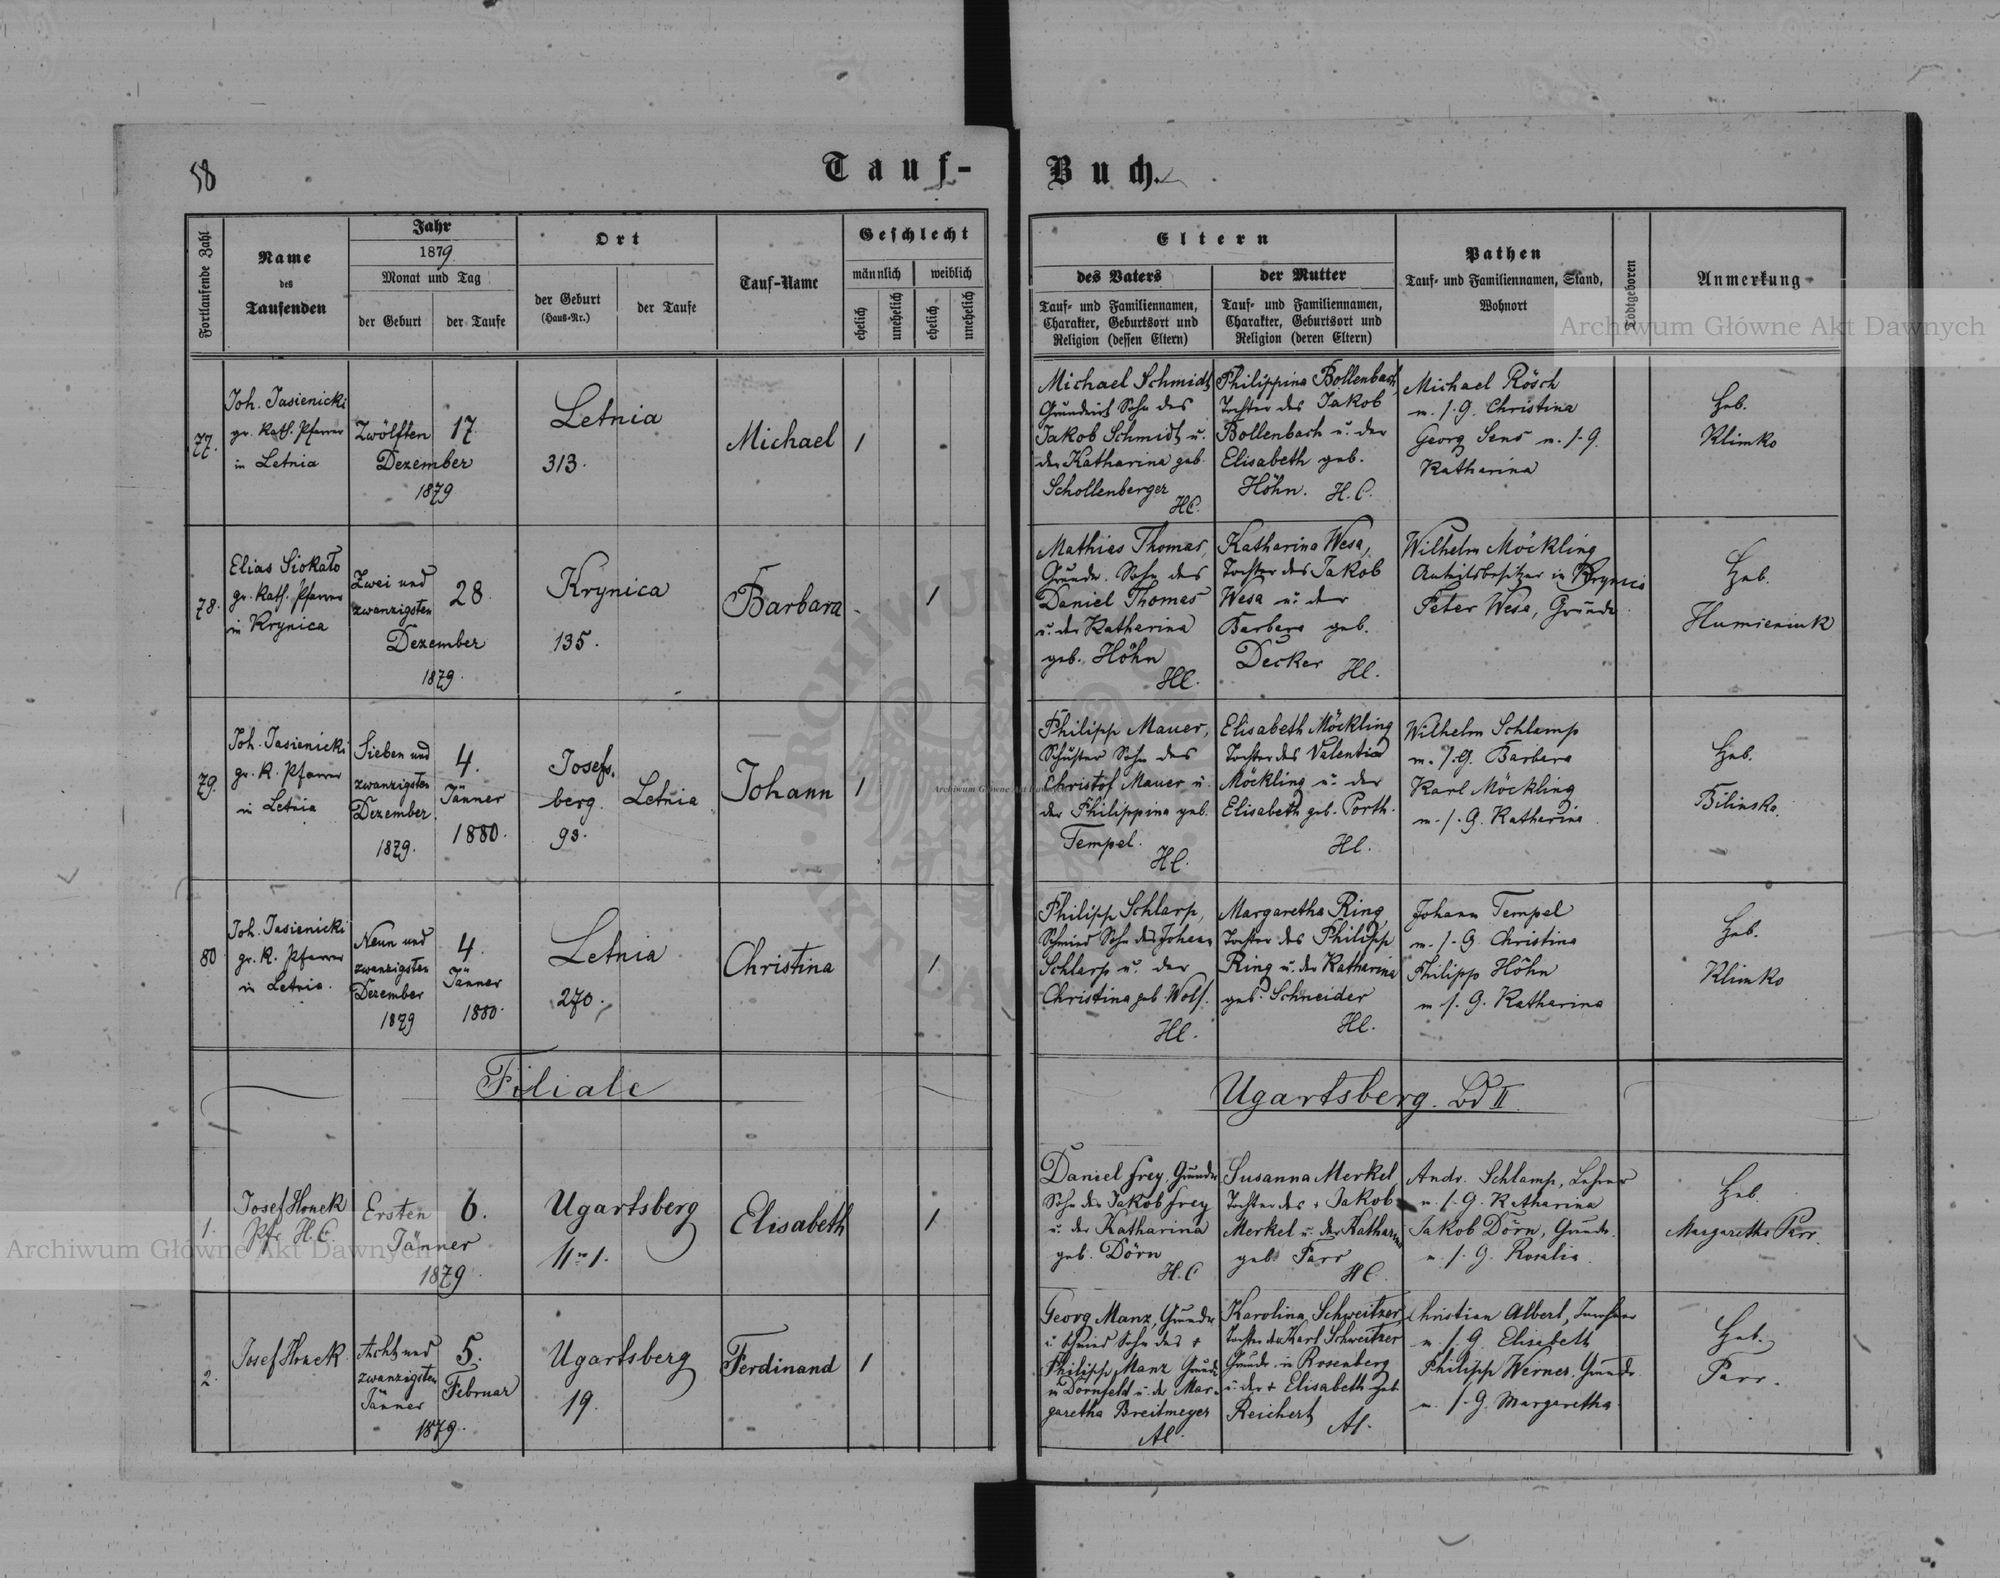 58
Tauf-Buch.
Fortlaufende Zahl
Name
des
Taufenden
Jahr
1879
Monat und Tag
der Geburt
der Taufe
Ort
der Geburt
(Haus-Nr.)
der Taufe
Tauf-Name
Geschlecht
männlich
weiblich
ehelich
unehelich
ehelich
unehelich
Eltern
des Vaters
Tauf- und Familiennamen,
Charakter, Geburtsort und
Religion (dessen Eltern)
der Mutter
Tauf- und Familiennamen,
Charakter, Geburtsort und
Religion (deren Eltern)
Pathen
Tauf- und Familiennamen, Stand,
Wohnort
Todtgeboren
Anmerkung
77.
Joh. Jasienicki
gr. kath. Pfarrer
in Letnia
Zwölften
Dezember
1879
17
Letnia
313.
Michael
1
Michael Schmidt
Grundwirt Sohn des
Jakob Schmidt u.
der Katharina geb.
Schollenberger
HC.
Philippina Bollenbach,
Tochter des Jakob
Bollenbach u. der
Elisabeth geb.
Höhn. H.C.
Michael Rösch
u. s. G. Christina
Georg Sens u. s. G.
Katharina
Heb.
Klimko
78.
Elias Siokalo
gr. kath. Pfarrer
in Krynica
Zwei und
zwanzigsten
Dezember
1879.
28.
Krynica
135.
Barbara
1
Mathias Thomas,
Grundw. Sohn des
Daniel Thomas
u. der Katharina
geb. Höhn
HC.
Katharina Wesa,
Tochter des Jakob
Wesa u. der
Barbara geb.
Decker HC.
Wilhelm Möckling
Anteilsbesitzer in Krynica
Peter Wesa, Grundw.
Heb.
Humieniuk
79.
Joh. Jasienicki
gr. k. Pfarrer
in Letnia
Sieben und
zwanzigsten
Dezember.
1879.
4.
Jänner
1880.
Josefs-
berg
93.
Letnia
Johann
1
Philipp Mauer,
Schuster Sohn des
Christof Mauer u.
der Philippina geb.
Tempel.
HC.
Elisabeth Möckling
Tochter des Valentin
Möckling u. der
Elisabeth geb. Porth.
HC.
Wilhelm Schlamp
u. s. G. Barbara
Karl Möckling
u. s. G. Katharina
Heb.
Bilinska.
80
Joh. Jasienicki
gr. k. Pfarrer
in Letnia.
Neun und
zwanzigsten
Dezember
1879
4.
Jänner
1880.
Letnia
270.
Christina
1.
Philipp Schlarp,
Schmied Sohn des Johann
Schlarp u. der
Christina geb. Wolf.
HC.
Margaretha Ring,
Tochter des Philipp
Ring u. der Katharina
geb. Schneider
HC.
Johann Tempel
u. s. G. Christina
Philipp Höhn
u. s. G. Katharina
Heb.
Klimko
Filiale
Ugartsberg. Bd II.
1.
Josef Honek
Pfr. H.C.
Ersten
Jänner
1879.
6.
Ugartsberg
Nr 1.
Elisabeth
1
Daniel Frey, Grundw.
Sohn des Jakob Frey
u. der Katharina
geb. Dörn
H.C
Susanna Merkel
Tochter des + Jakob
Merkel u. der Katharina
geb. Parr
HC.
Andr. Schlamp, Lehrer
u. s. G. Katharina
Jakob Dörn, Grundw.
u. s. G. Rosalia.
Heb.
Margaretha Parr.
2.
Josef Honek
Acht und
zwanzigsten
Jänner
1879.
5.
Februar
Ugartsberg
19.
Ferdinand
1
Georg Manz, Grundw.
u. Schmied Sohn des +
Philipp Manz Grundw.
in Dornfeld u. der Mar-
garetha Breitmeyer
AC.
Karolina Schweitzer,
Tochter des Karl Schweitzer
Grundw. in Rosenberg
u. der + Elisabeth geb.
Reichert AC.
Christian Albert,
u. s. G. Elisabeth
Philipp Werner. Grundw.
u. s. G. Margaretha.
Heb.
Parr.
Archiwum Główne Akt Dawnych
Archiwum Główne Akt Dawnych
Archiwum Główne Akt Dawnych